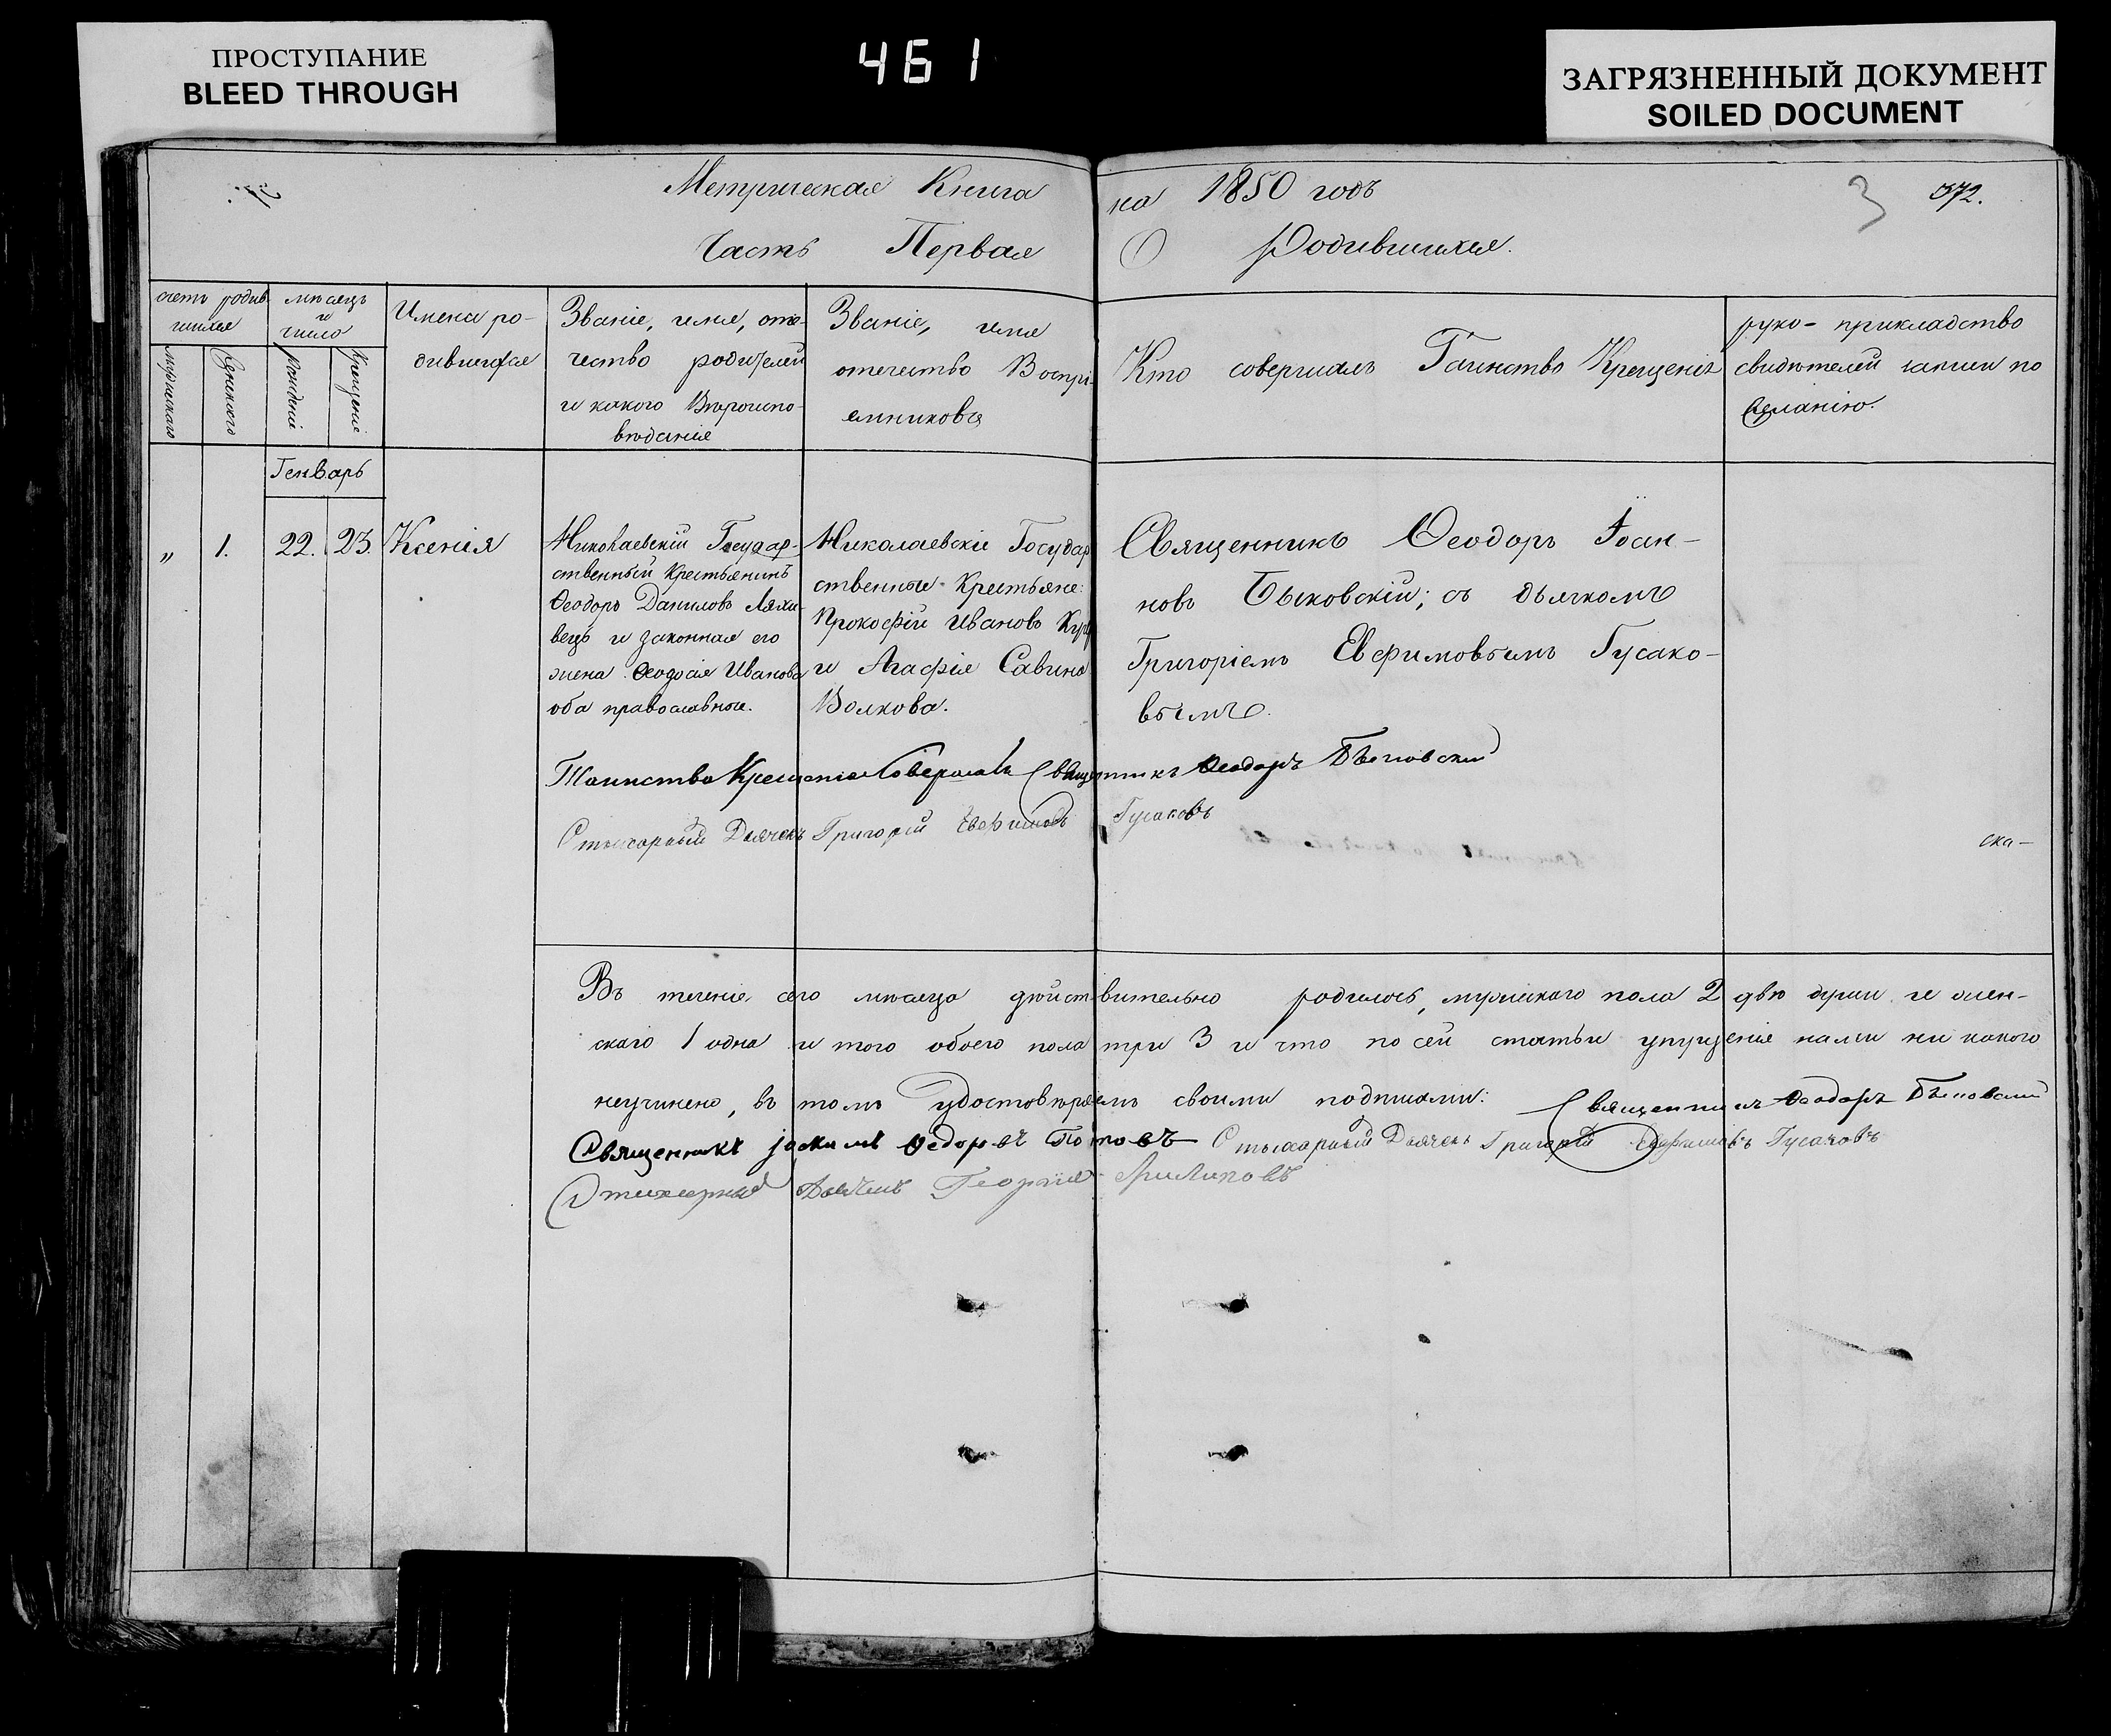 ПРОСТУПАНИЕ
BLEED THROUGH
461
ЗАГРЯЗНЕННЫЙ ДОКУМЕНТ
SOILED DOCUMENT
Метрическая Книга на 1850 годъ
3 372.
Часть Первая О Родившихся.
счетъ родив
шихся
мужескаго
женскаго
мѣсяцъ
и
число
рожденіе
крещеніе
Имена ро-
дившихся
Званіе, имя, оте-
чество родителей
и какого Вѣроиспо-
вѣданія
Званіе, имя
отечество Воспрі-
емниковъ
Кто совершалъ Таинство Крещенія
руко-прикладство
свидѣтелей записи по
желанію.
Генварь
„ 1. 22. 23. Ксенія
Николаевскій Государ-
ственный Крестьянинъ
Ѳеодоръ Даниловъ Ляхо-
вецъ и законная его
жена Ѳеодосія Иванова
оба православные.
Николаевскіе Государ
ственные Крестьяне:
Прокофій Ивановъ
и Агафія Савина
Волкова.
Священникъ Ѳеодоръ Іоан-
новъ Быковскій; съ дьячкомъ
Григоріемъ Евфимовымъ Гусако-
вымъ.
Таинство Крещенія Совершалъ Священникъ Ѳеодоръ Быковский
Стихарный Дьячекъ Григорій Евфимовъ Гусаковъ
ска-
Въ теченіе сего мѣсяца дѣйствительно родилось, мужескаго пола 2 двѣ души и жен-
скаго 1 одна и того обоего пола три 3 и что по сей статьи упущенія нами ни какого
неучинено, въ томъ удостовѣряемъ своими подписями: Священникъ Ѳеодоръ Быковский
Священникъ Ѳедоровъ Поповъ Стихарный Дьячекъ Григорій Евфимовъ Гусаковъ
Стихарный Дьячекъ Георгій Филиповъ